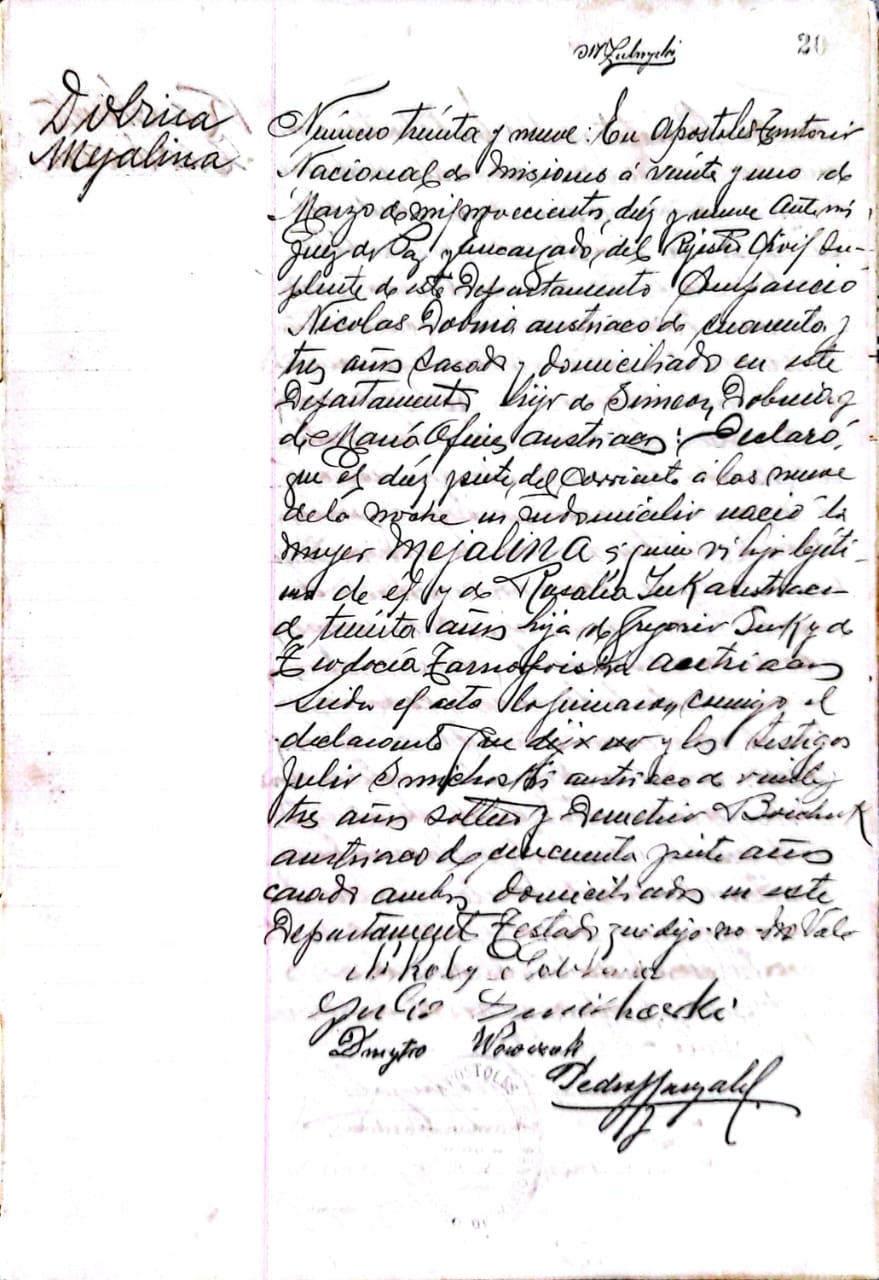 20
Dobnia
Mejalina
Número treinta y nueve: En Apostoles Territorio
Nacional de Misiones á veinte y uno de
Marzo de mil novecientos diez y nueve Ante mi
Juez de Paz y Encargado del Rejistro Civil Su-
plente de este Departamento Compareció
Nicolas Dobnia austriaco de cuarenta y
tres años Casado y domiciliado en este
Departamento hijo de Simeon Dobnia y
de María austriacos: Declaró,
que el diez siete del corriente á las nueve
de la noche en su domicilio nació la
mujer Mejalina á quien vi hija lejíti-
ma de él y de Rosalía Iuk austriaca
de treinta años hija de Gregorio Iuk y de
austriacos
Leida el acta la firmaron conmigo el
declarante que dijo no y los testigos
Julio Smichoski austriaco de veinte y
tres años soltero y Demetrio Boichuk
austriaco de cincuenta siete años
casado ambos domiciliados en este
Departamento Testado que dijo no - No Vale
Nikoly
Julio
Dmytro
Pedro Gonzalez